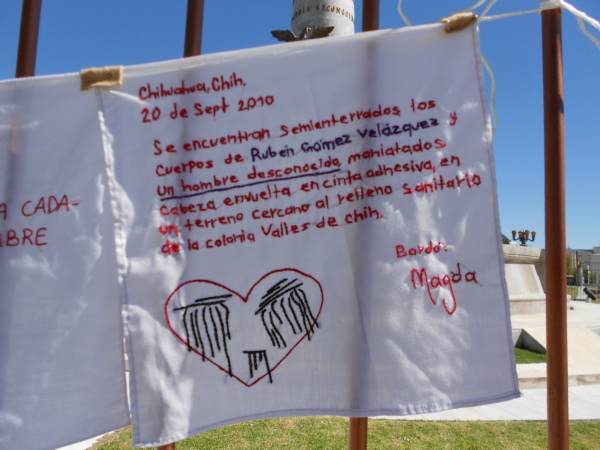 Chihuahua, Chih,
20 de Sept 2010
Se encuentran semienterrados los
cuerpos de Rubén Gómez Velázquez y
un hombre desconocido maniatados
cabeza envuelta en cinta adhesiva, en
un terreno cercano al relleno sanitario
de la colonia Valles de chih.
Bordó:
Magda
A CADA-
MBRE